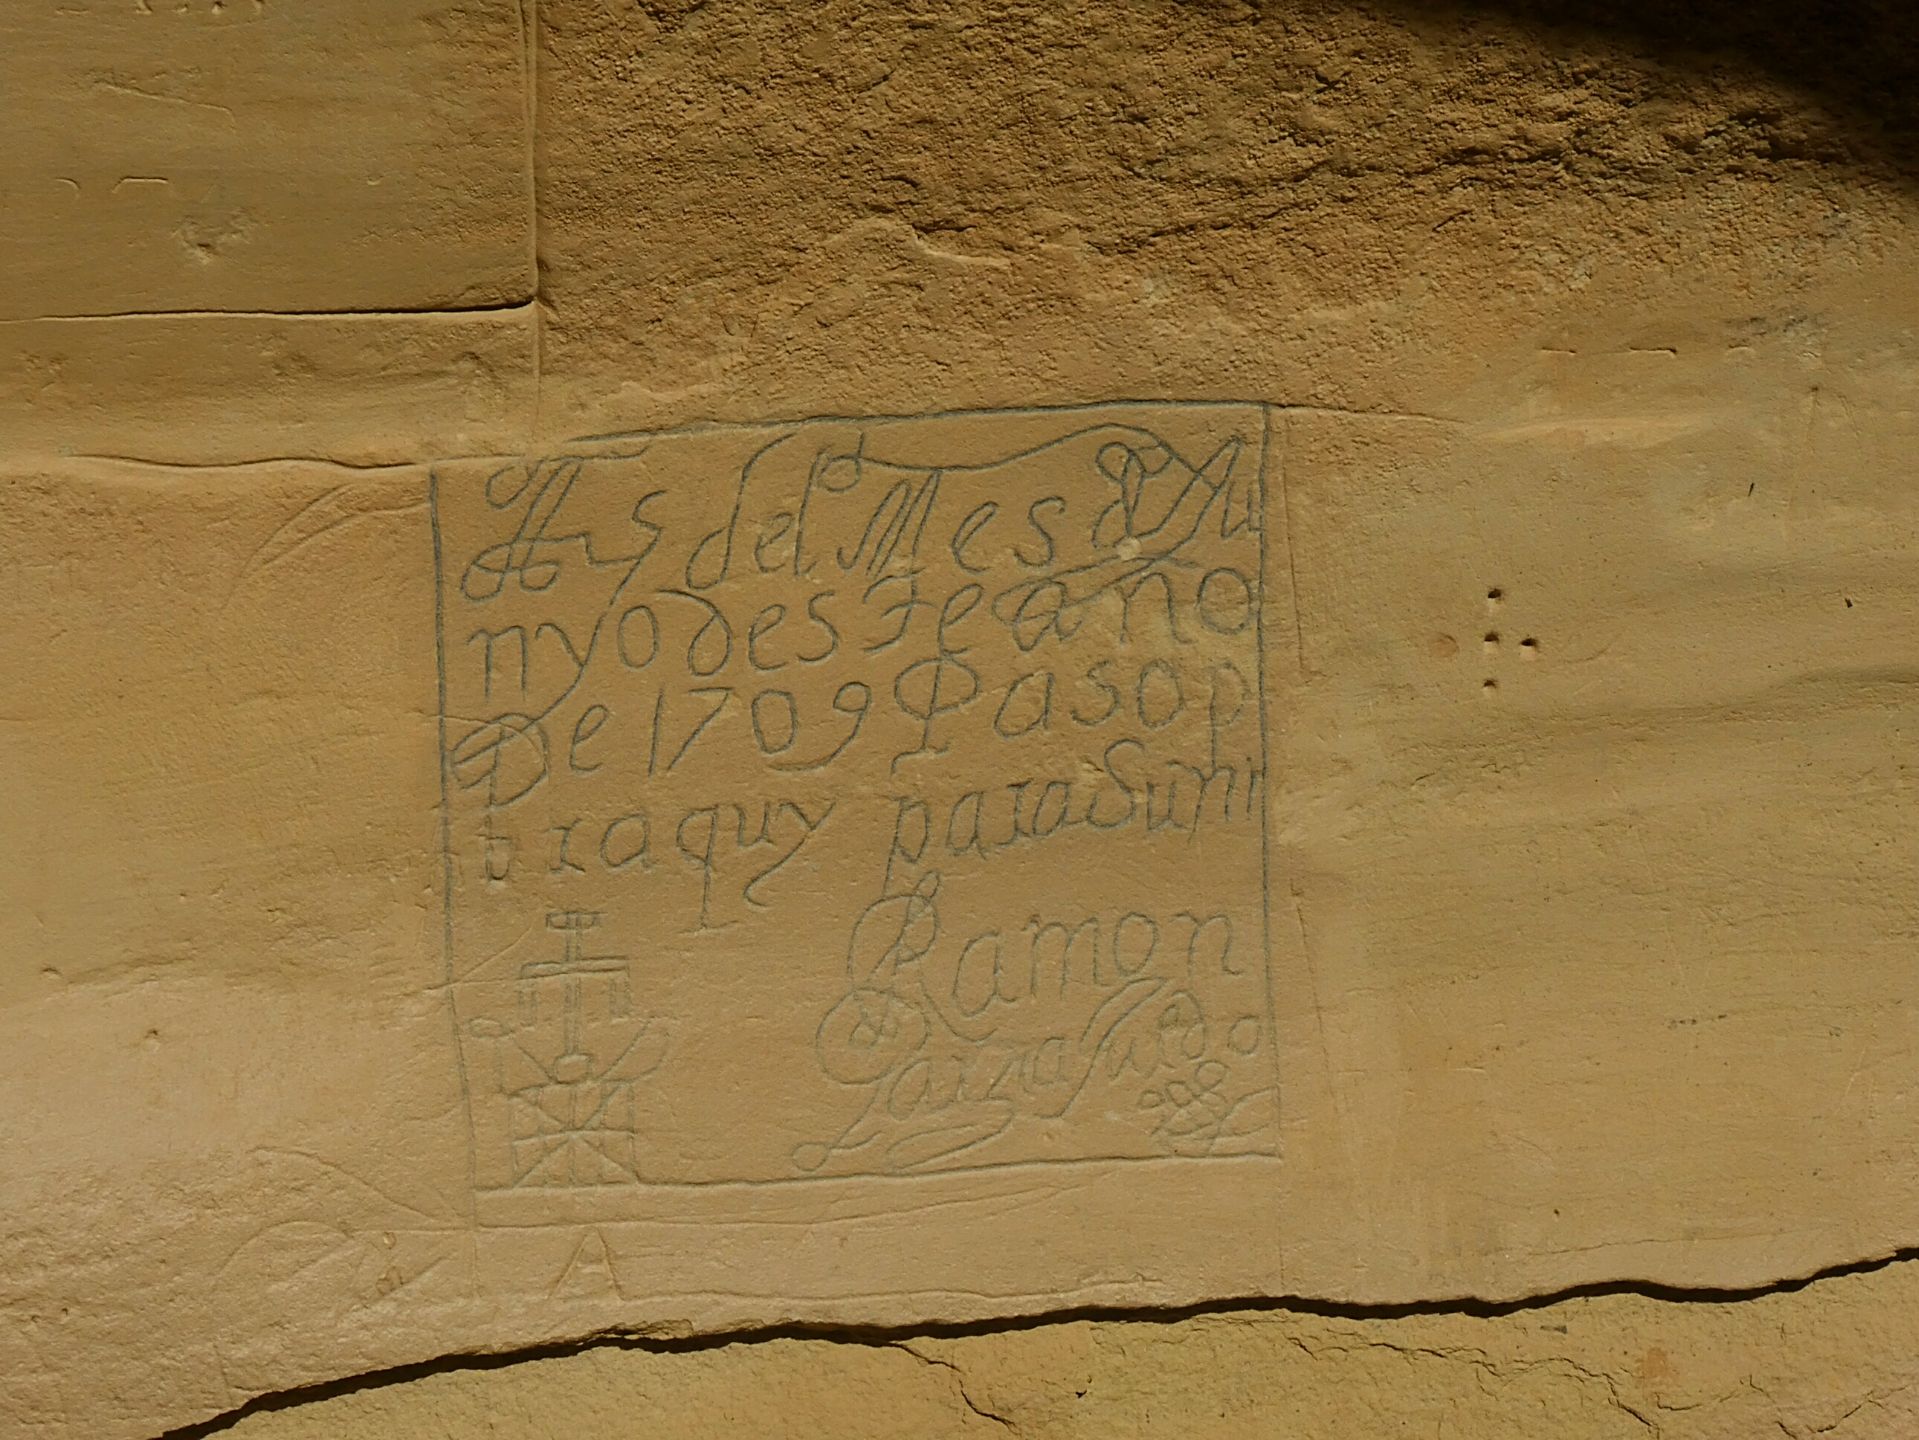 A y 5 del Mes d Ju
nyo deste año
De 1709 Paso p
or aquy para Suñi
Ramon
Garzia Jurado
A